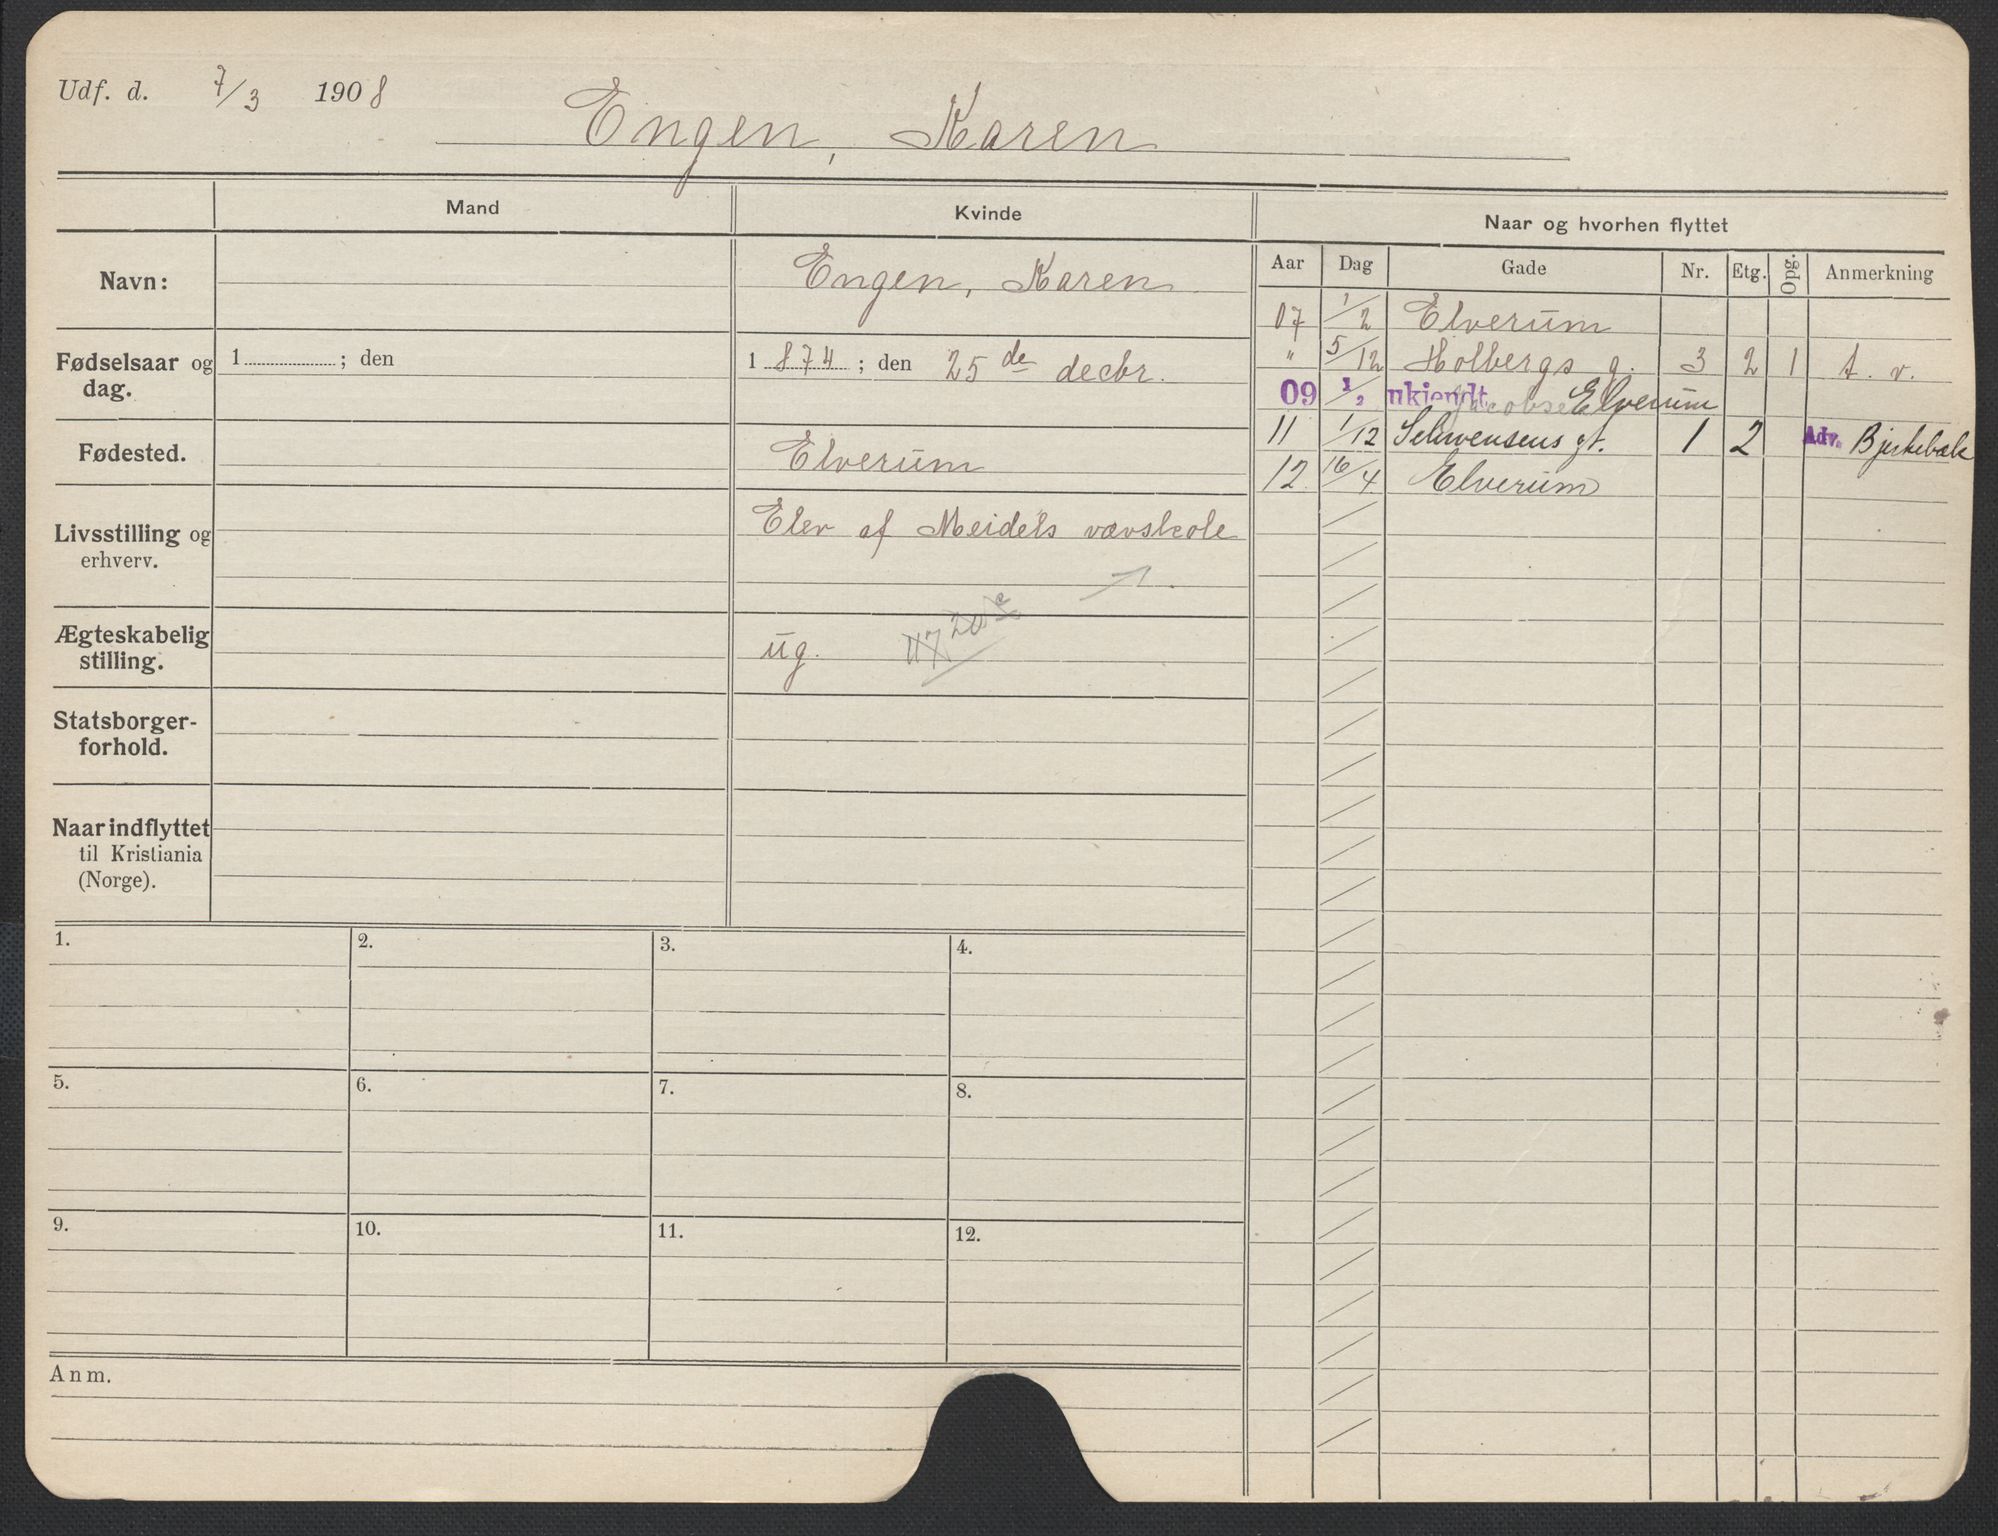 Udf. d. 7/3 1908
Engen, Karen
Mand
Kvinde
Naar og hvorhen flyttet
Aar Dag Gade Nr. Etg. Opg. Anmerkning
Navn:
Engen, Karen
07 1/2 Elverum
Fødselsaar og dag.
1 ; den
1 874 ; den 25 de decbr.
" 5/12 Holbergs g. 3 2 1 A. v.
09 1/2 ukjendt Elverum
Fødested.
Elverum
11 1/12 Schwensens gt. 1 2 Adv. Bjerkebæk
12 16/4 Elverum
Livsstilling og
erhverv.
Elev af Meidels vævskole
Ægteskabelig
stilling.
ug.
Statsborger-
forhold.
Naar indflyttet
til Kristiania
(Norge).
1. 2. 3. 4.
5. 6. 7. 8.
9. 10. 11. 12.
Anm.